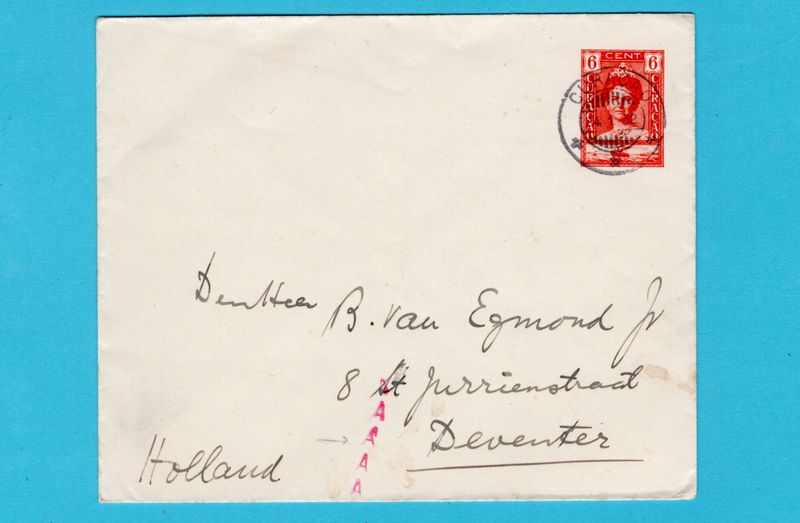 6 CENT 6
CURAÇAO CURAÇAO
CURAÇAO
Den Heer B. van Egmond Jr
8 St Jurrienstraat
Deventer
Holland
A
A
A
A
A